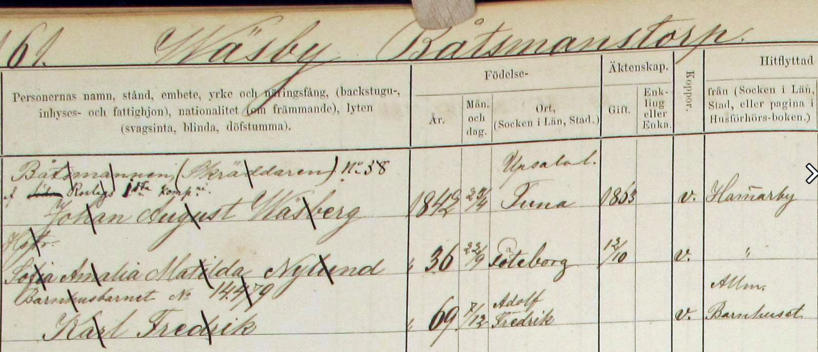 161. Wäsby Båtsmanstorp.
Personernas namn, stånd, embete, yrke och näringsfång, (backstugu-, inhyses- och fattighjon), nationalitet (om främmande), lyten (svagsinta, blinda, döfstumma).
Födelse-
År.
Mån. och dag.
Ort, (Socken i Län, Stad.)
Äktenskap.
Gift.
Enk- ling eller Enka.
Koppor.
Hitflyttad
från (Socken i Län, Stad, eller pagina i Husförhörs-boken.)
Båtsmannen (Skräddaren) No 38 Upsala l.
Roslags 1sta komp.
Johan August Wäsberg 1842 Tuna 1863 v. Hammarby
Hstr.
Sofia Amalia Matilda Nylund " 36 22/9 Göteborg 13/10 v. "
Barnhusbarnet No 14479 Adolf Allm.
Karl Fredrik " 69 7/12 Fredrik v. Barnhuset